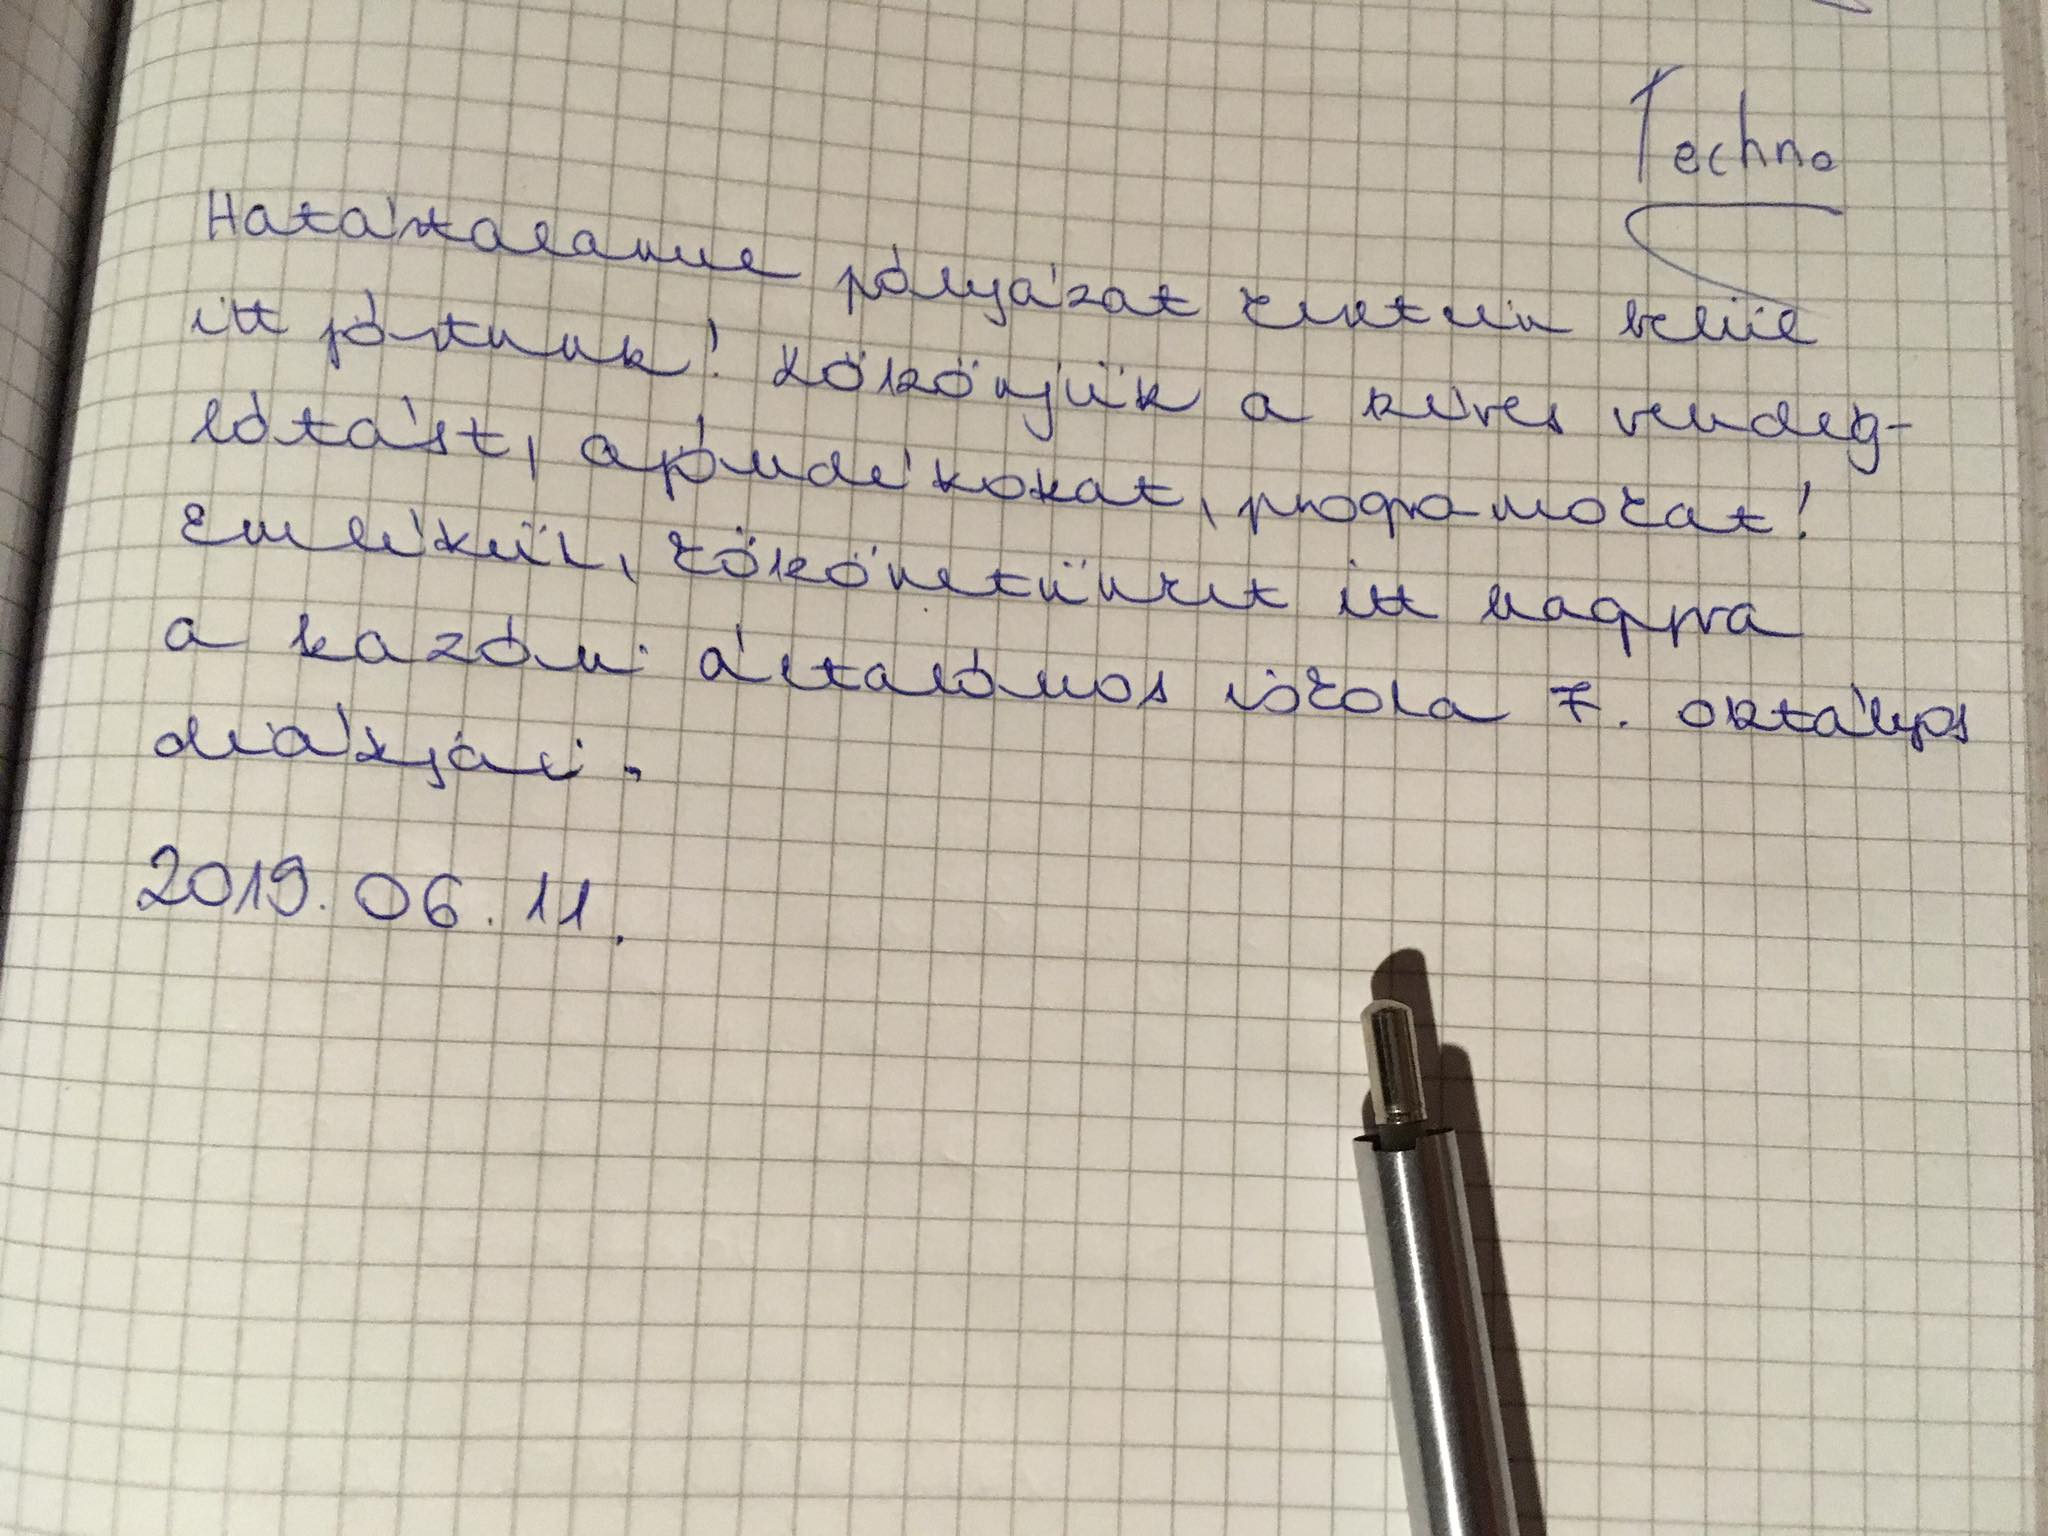 Techno
Határtalanul pályázat keretein belül
itt jártunk! Köszönjük a kedves vendég-
látást, ajándékokat, programokat!
Emlékül, köszönetünket itt hagyva
a kazári általános iskola 7. osztályos
diákjai.
2019.06.11.